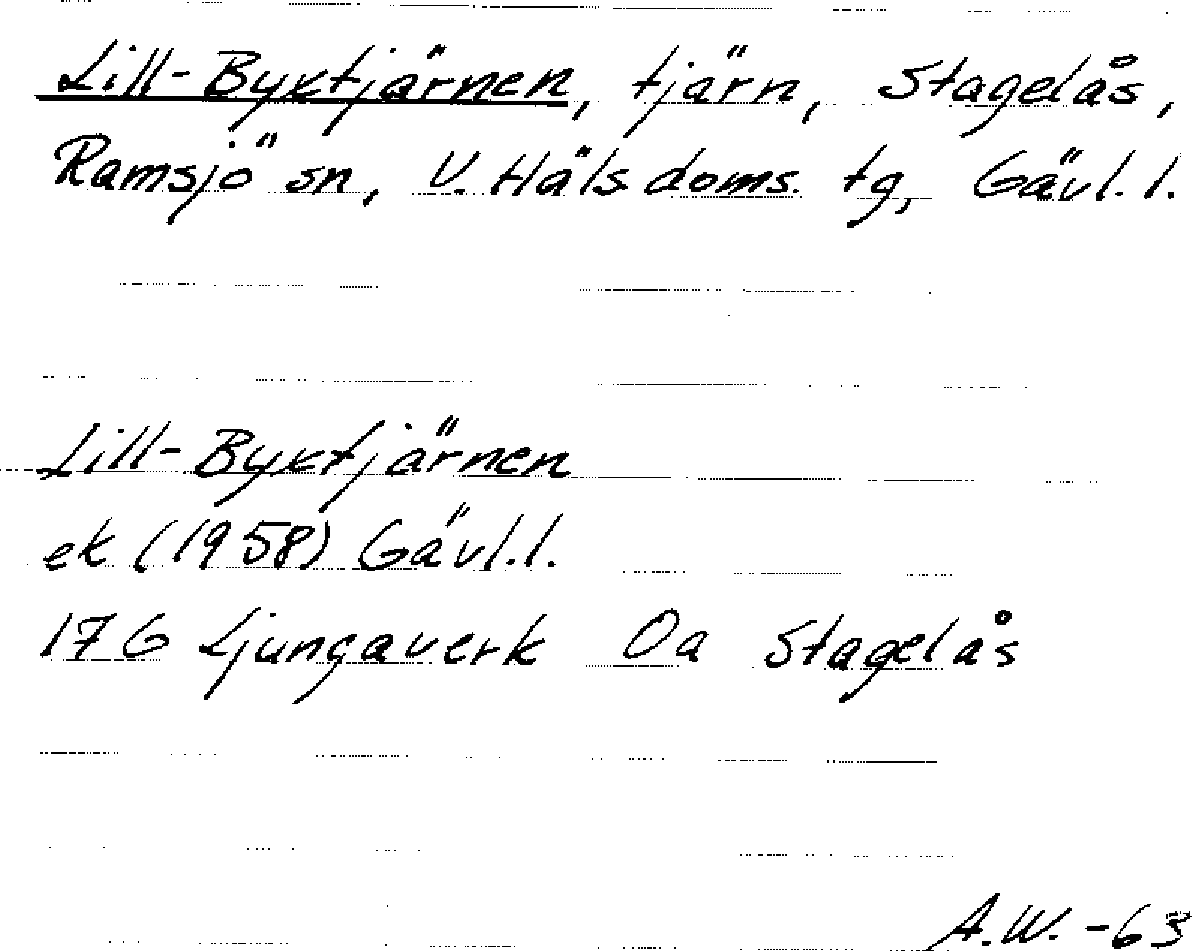 Lill-Byktjärnen, tjärn, Stagelås,
Ramsjö sn, V. Häls doms. tg, Gävl. l.
Lill-Byktjärnen
ek (1958) Gävl.l.
17G Ljungaverk Oa Stagelås
A.W. -63